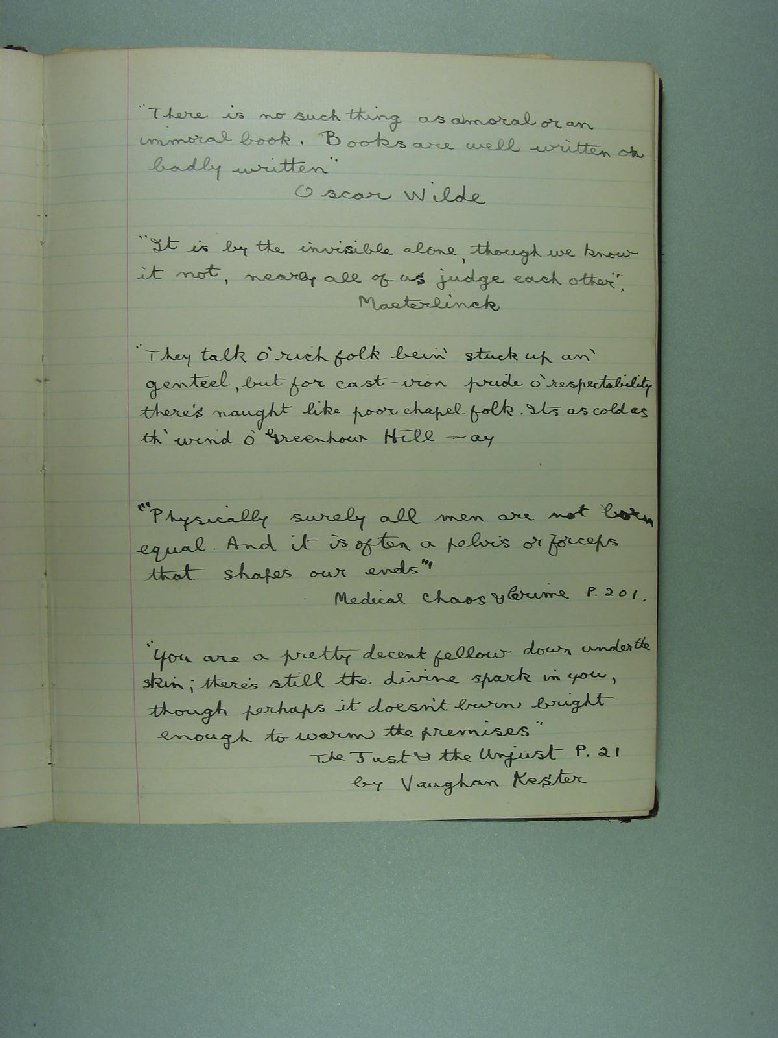 "There is no such thing as a moral or an
immoral book. Books are well written or
badly written"
Oscar Wilde
"It is by the invisible alone, though we know
it not, nearly all of us judge each other".
Maeterlinck
"They talk o' rich folk bein' stuck up an'
genteel, but for cast-iron pride o' respectability
there's naught like poor chapel folk. Its as cold as
th' wind o' Greenhow Hill — ay
"'Physically surely all men are not born
equal. And it is often a pelvis or forceps
that shapes our ends"'
Medical Chaos & Crime P. 201.
"You are a pretty decent fellow down under the
skin; there's still the divine spark in you,
though perhaps it doesn't burn bright
enough to warm the premises"
The Just & the Unjust P. 21
by Vaughan Kester